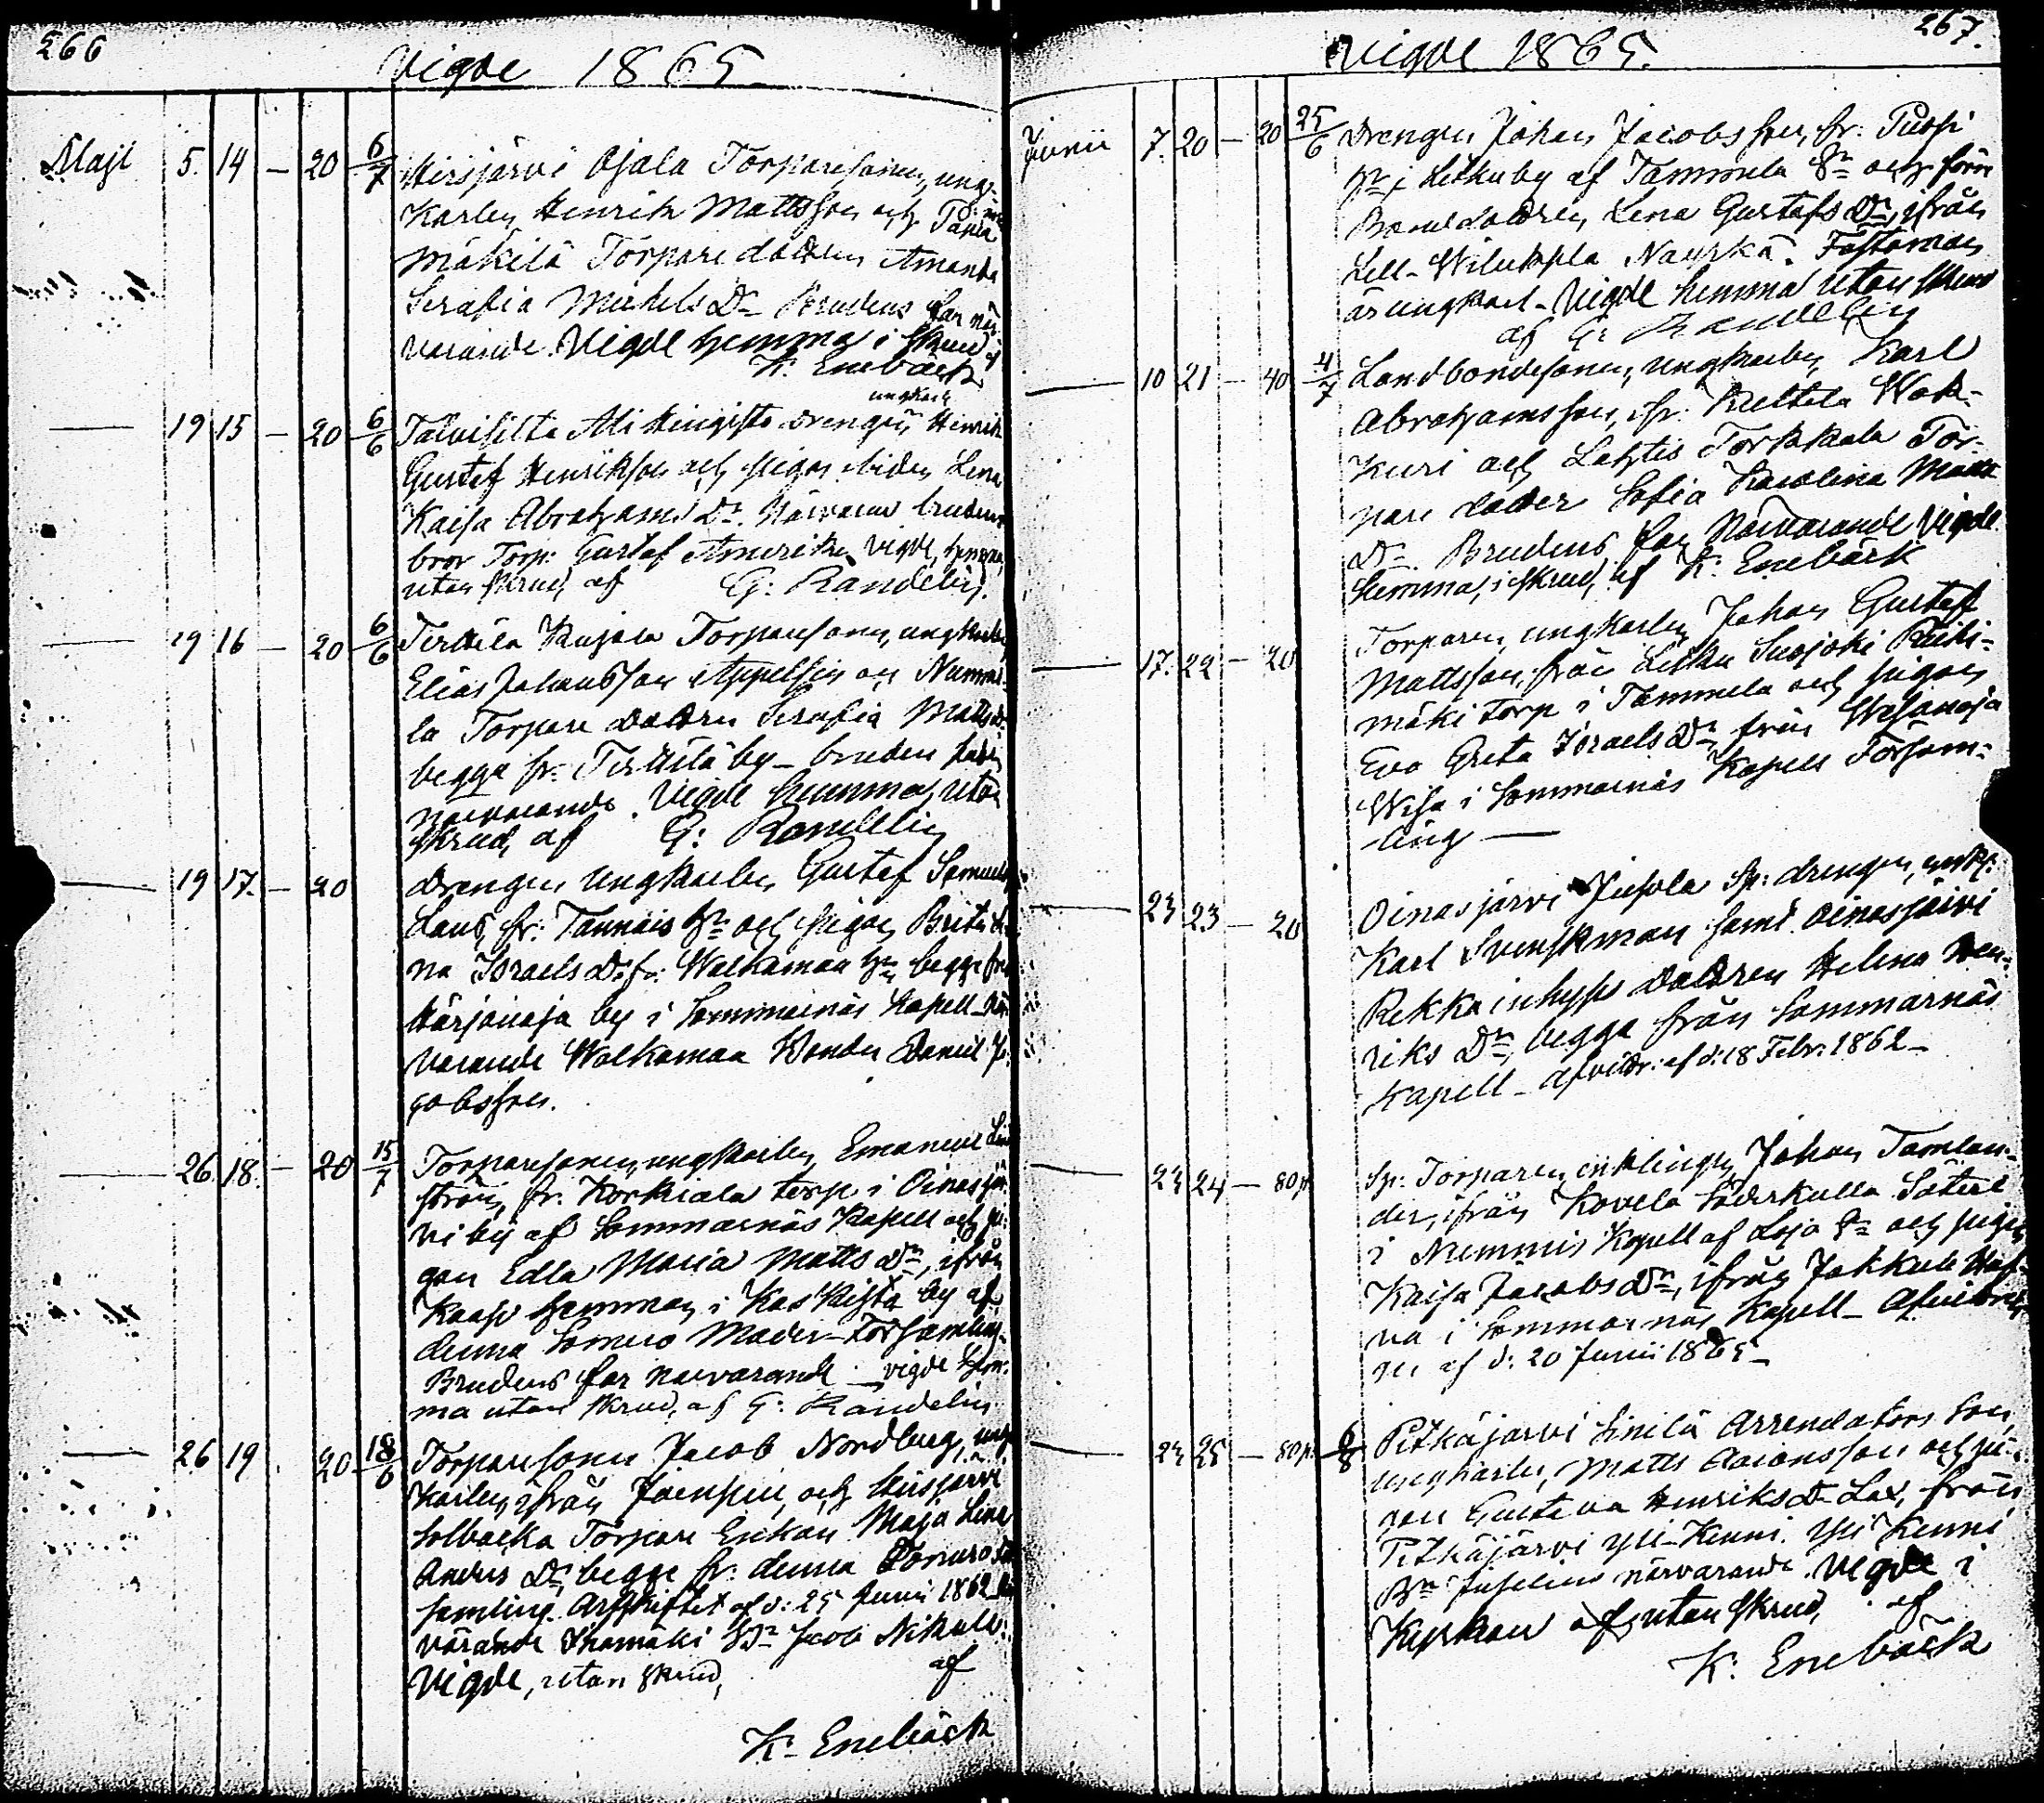 266
Vigde 1865
Maji 5. 14 – 20 6/7 Hirsjärvi Ojala Torparesonen, ung-
Karlen Henrik Mattsson och
Mäkilä Torpare dottren Amanda
Serafia Michels Dr Brudens far när-
varande. Vigde hemma i skrud af
K: Enebäck
— 19 15 – 20 6/6 Talvisilta Ali Hingisto drengen ungkarlen Henrik
Gustaf Henriksson och pigan Lena
Kaisa Abrahams Dr. Närvarande brudens
bror Torp: Gustaf Vigde, hemma,
utan skrud, af G: Randelin.
— 19 16 – 20 6/6 Terttilä Torparesonen, ungkarlen
Elias Johansson Appelsin och
la Torpare dottren Serafia Matts dr
begge fr: Terttilä by – brudens fader
närvarande. Vigde hemma, utan
skrud, af G: Randelin
— 19 17. – 20 Drengen ungkarlen Gustaf Samuels
fr: hn och pigan Brita
na Israels Dr fr: Walkamaa hn begge från
Härjänoja by i Sommarnäs Kapell – när
varande Walkamaa Bonden Daniel Ja-
cobsson.
— 26. 18. – 20 15/7 Torparesonen, ungkarlen, Emanuel Lind
ström, fr. Korkiala torp i Oinasjär
vi by af Sommarnäs Kapell och pi-
gan Edla Maria Matts Dr, ifrån
hemman i Kaskisto by af
denna Somero Moder-Församling.
Brudens far närvarande – vigde hem-
ma utan skrud, af G: Randelin
— 26 19 . 20 18/6 Torparesonen Jacob Nordberg, ung-
karlen, ifrån och Hirsjärvi
Solbacka Torpare Enkan Maja Lena
Anders Dr, begge fr: denna Somero För
samling. Arfskiftet af d: 25 Junii 1862
värande bn Jacob
Vigde, utan skrud, af
K: Enebäck
267.
Vigde 1865.
Junii 7. 20 – 20 25/6 Drengen Johan Jacobsson, fr:
hn i Letku by af Tammela Sn och förre
dottren Lena Gustafs Dr, ifrån
Lill-Wiluksela Fästeman
är ungkarl – Vigde hemma utan skrud
af G: Randelin
— 10 21 – 40 4/7 Landbondesonen, ungkarlen Karl
Abrahamsson, ifr: Kulttila
och Lahtis Torkkala Tor-
pare dotter Sofia Karolina Matts
Dr. Brudens far Närvarande Vigde
hemma, i skrud, af K: Enebäck
— 17. 22 – 20 Torparen, ungkarlen Johan Gustaf
Mattsson, från Letku Suojoki
mäki torp i Tammela och pigan
Eva Greta Israels Dr, från
i Sommarnäs Kapell Försam-
ling —
— 23 23 – 20 Oinasjärvi Jussila Sp: drengen, enkl:
Karl Svenskman samt Oinasjärvi
Rekka inhyses dottren Helena Hen-
riks Dr, begga från Sommarnäs
Kapell – afvittr: af d: 18 Febr: 1862 –
— 23 24 – 80 p. Sp: Torparen, enklingen, Johan Tamlan-
der, ifrån Kovela Söderkulla Säteri
i Nummis Kapell af Lojo Sn och pigan
Kaisa Jacobs Dr, ifrån Jakkula
va i Sommarnäs Kapell – Afvittrin
gen af d: 20 Junii 1865 –
— 23 25 – 80 p. 6/8 Pitkäjärvi Sinilä Arrendators Son
ungkarlen, Matts Aronsson och pi-
gan Gustava Henriks Dr Lax, från
Pitkäjärvi Yli-Kenni. Yli Kenni
Bn Juselius närvarande. Vigde i
Kyrkan utan skrud, af
K: Enebäck